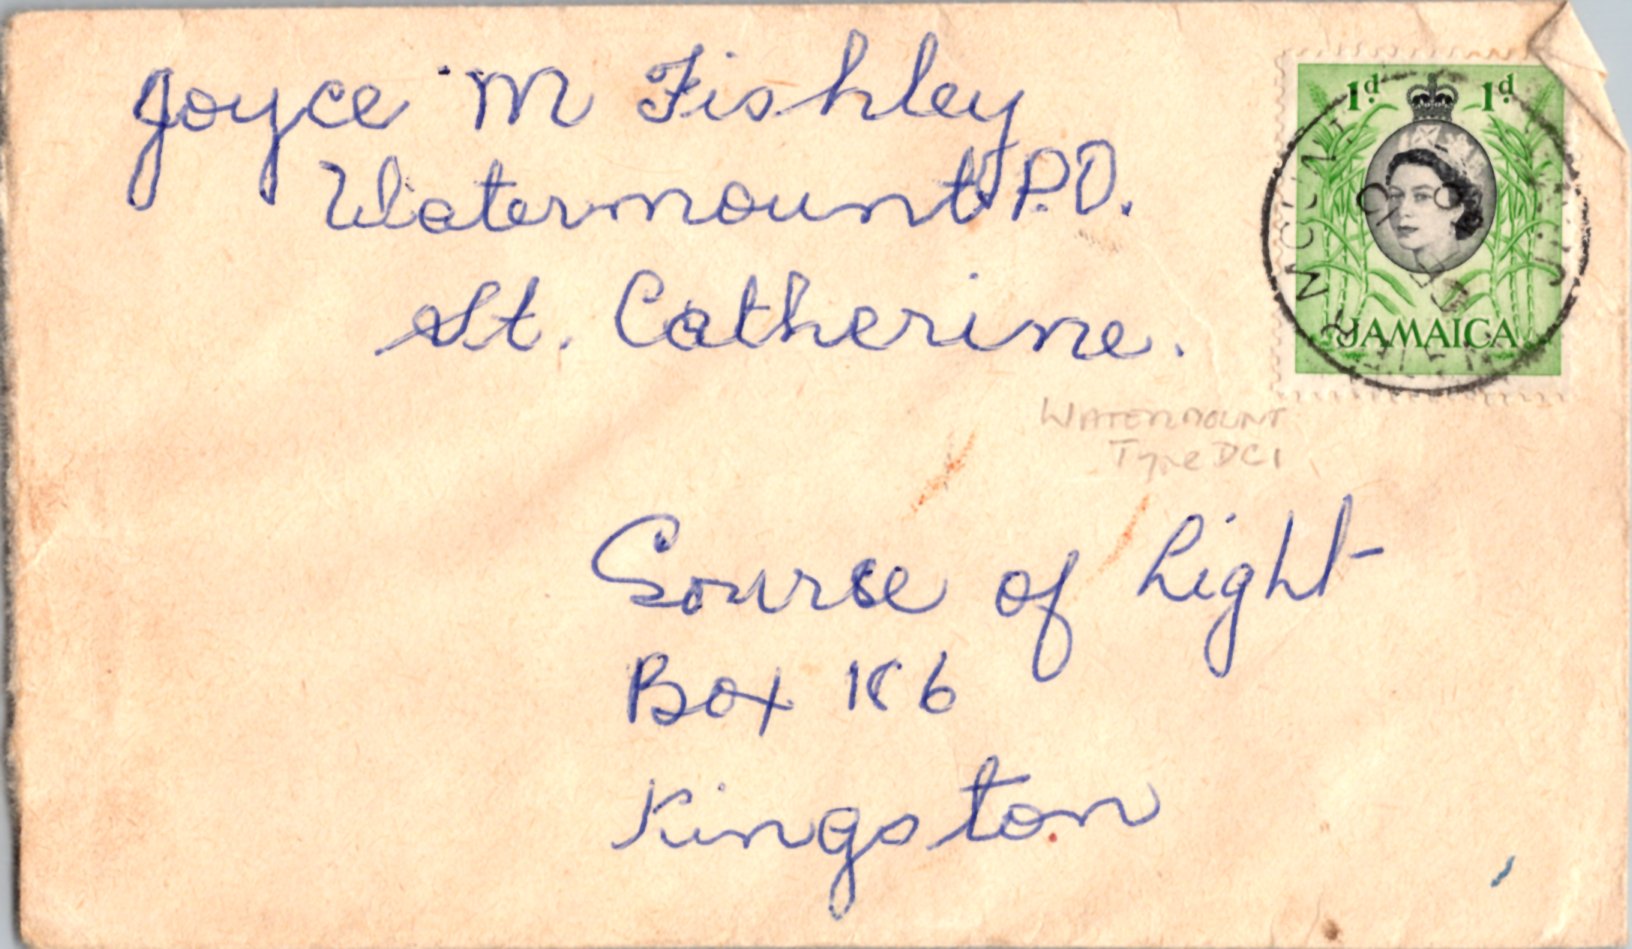 Joyce M Fishley
Watermount P.O.
St. Catherine.
1d 1d
JAMAICA
WATERMOUNT
Type DC1
Source of Light
Box 186
Kingston